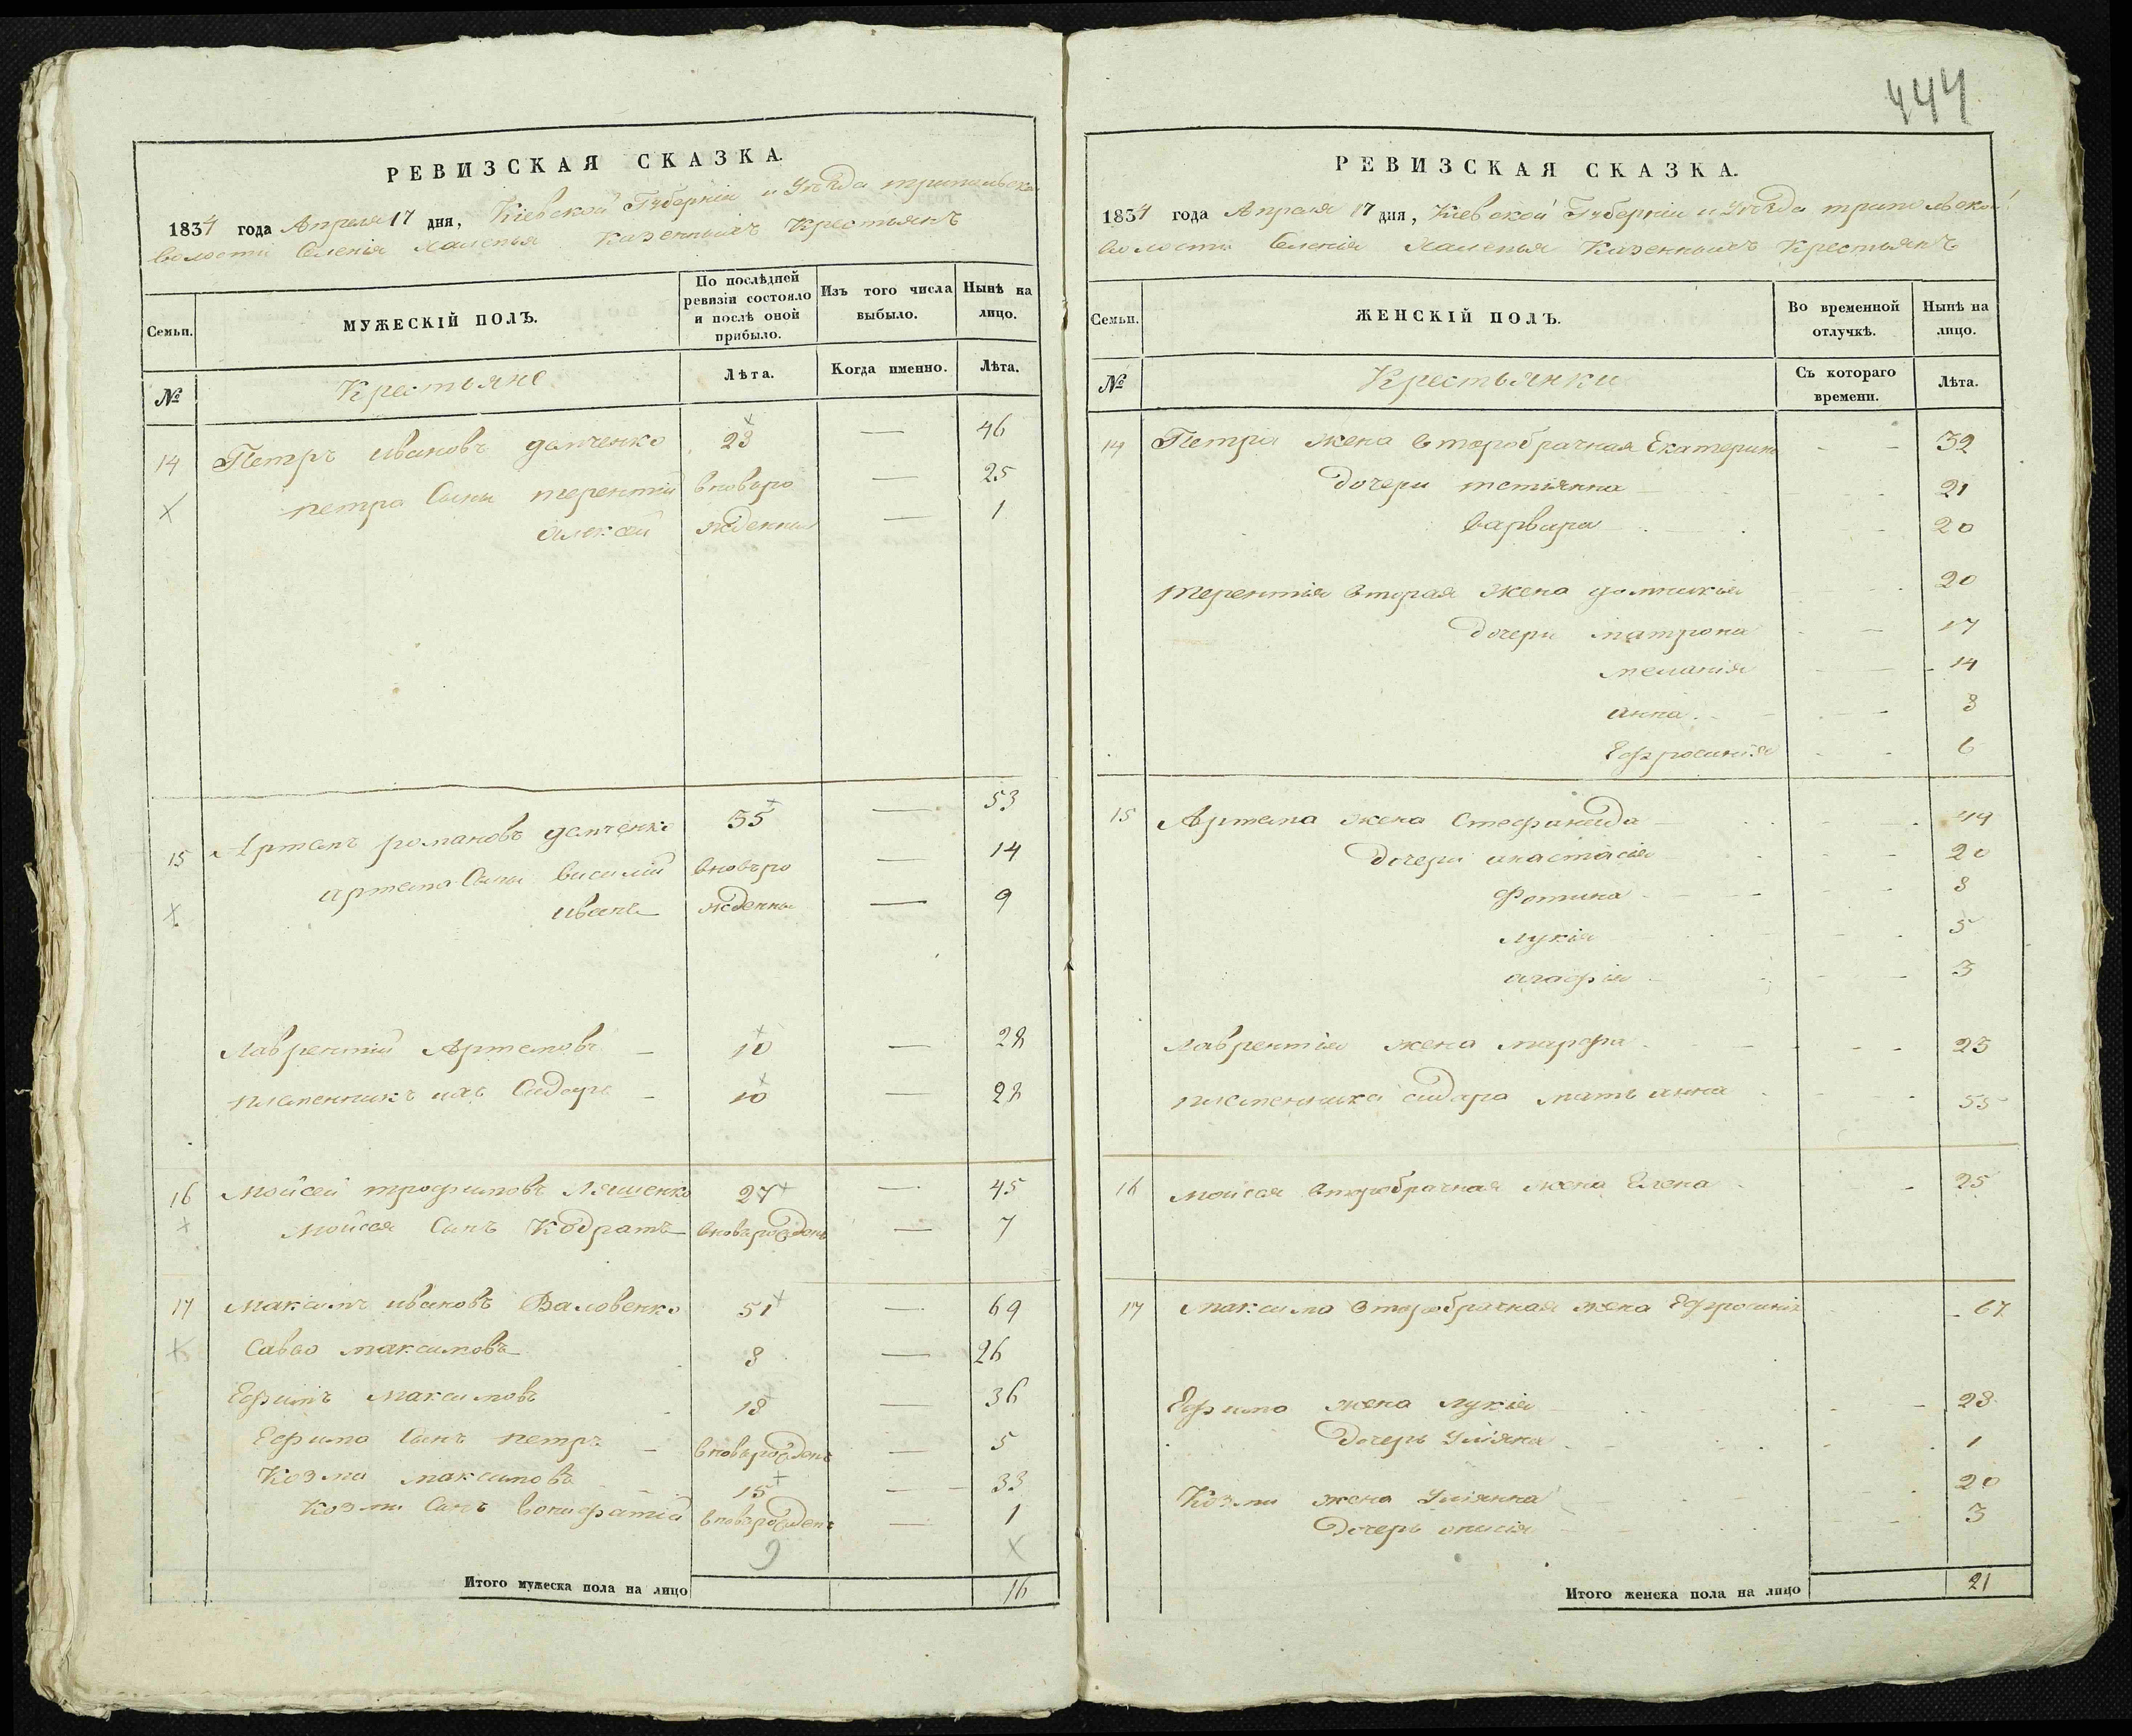 444
РЕВИЗСКАЯ СКАЗКА.
1834 года Апреля 17 дня, Кіевской Губерніи и Уѣзда трипольской
волости Селенія Халепья Казенныхъ Крестьянъ
Семьи.
МУЖЕСКІЙ ПОЛЪ.
По послѣдней ревизіи состояло и послѣ оной прибыло.
Изъ того числа выбыло.
Нынѣ на лицо.
№
Крестьяне
Лѣта.
Когда именно.
Лѣта.
14 Петръ Ивановъ демченко 28 — 46
петра Сыны терентій вновьро — 25
Алексей жденны — 1
15 Артемъ романовъ демченко 35 — 53
артема Сыны василій вновьро — 14
иванъ жденны — 9
Лаврентій Артемовъ — 10 — 28
племенникъ ихъ Сидоръ — 10 — 28
16 Мойсей трофимовъ Ляшенко 27 — 45
Мойсея Сынъ Кодратъ вноврожденъ — 7
17 Максимъ ивановъ Валовенко 51 — 69
Савва максимовъ 8 — 26
Ефимъ максимовъ 18 — 36
Ефима Сынъ петръ — вноврожденъ — 5
Козма максимовъ 15 — 33
Козмы Сынъ вонифатій вноврожденъ — 1
9
Итого мужеска пола на лицо 16
РЕВИЗСКАЯ СКАЗКА.
1834 года Апреля 17 дня, Кіевской Губерніи и Уѣзда трипольской
волости Селенія Халепья Казенныхъ Крестьянъ
Семьи.
ЖЕНСКІЙ ПОЛЪ.
Во временной отлучкѣ.
Нынѣ на лицо.
№
Крестьянки
Съ котораго времени.
Лѣта.
14 Петра жена второбрачная Екатерина - - 32
дочери 21
варвара 20
терентія вторая жена домникія 20
дочери матрона 17
меланія 14
анна 8
Ефросинія 6
15 Артема жена Стефанида 49
дочери анастасія 20
Фотина 8
лукія 5
агафія 3
Лаврентія жена марфа 25
племенника сидара мать анна 55
16 мойсея второбрачная жена Елена 25
17 максима второбрачная жена Ефросинія 67
Ефима жена лукія 28
дочерь Уліяна 1
Козмы жена Уліянна 20
дочерь 3
Итого женска пола на лицо 21